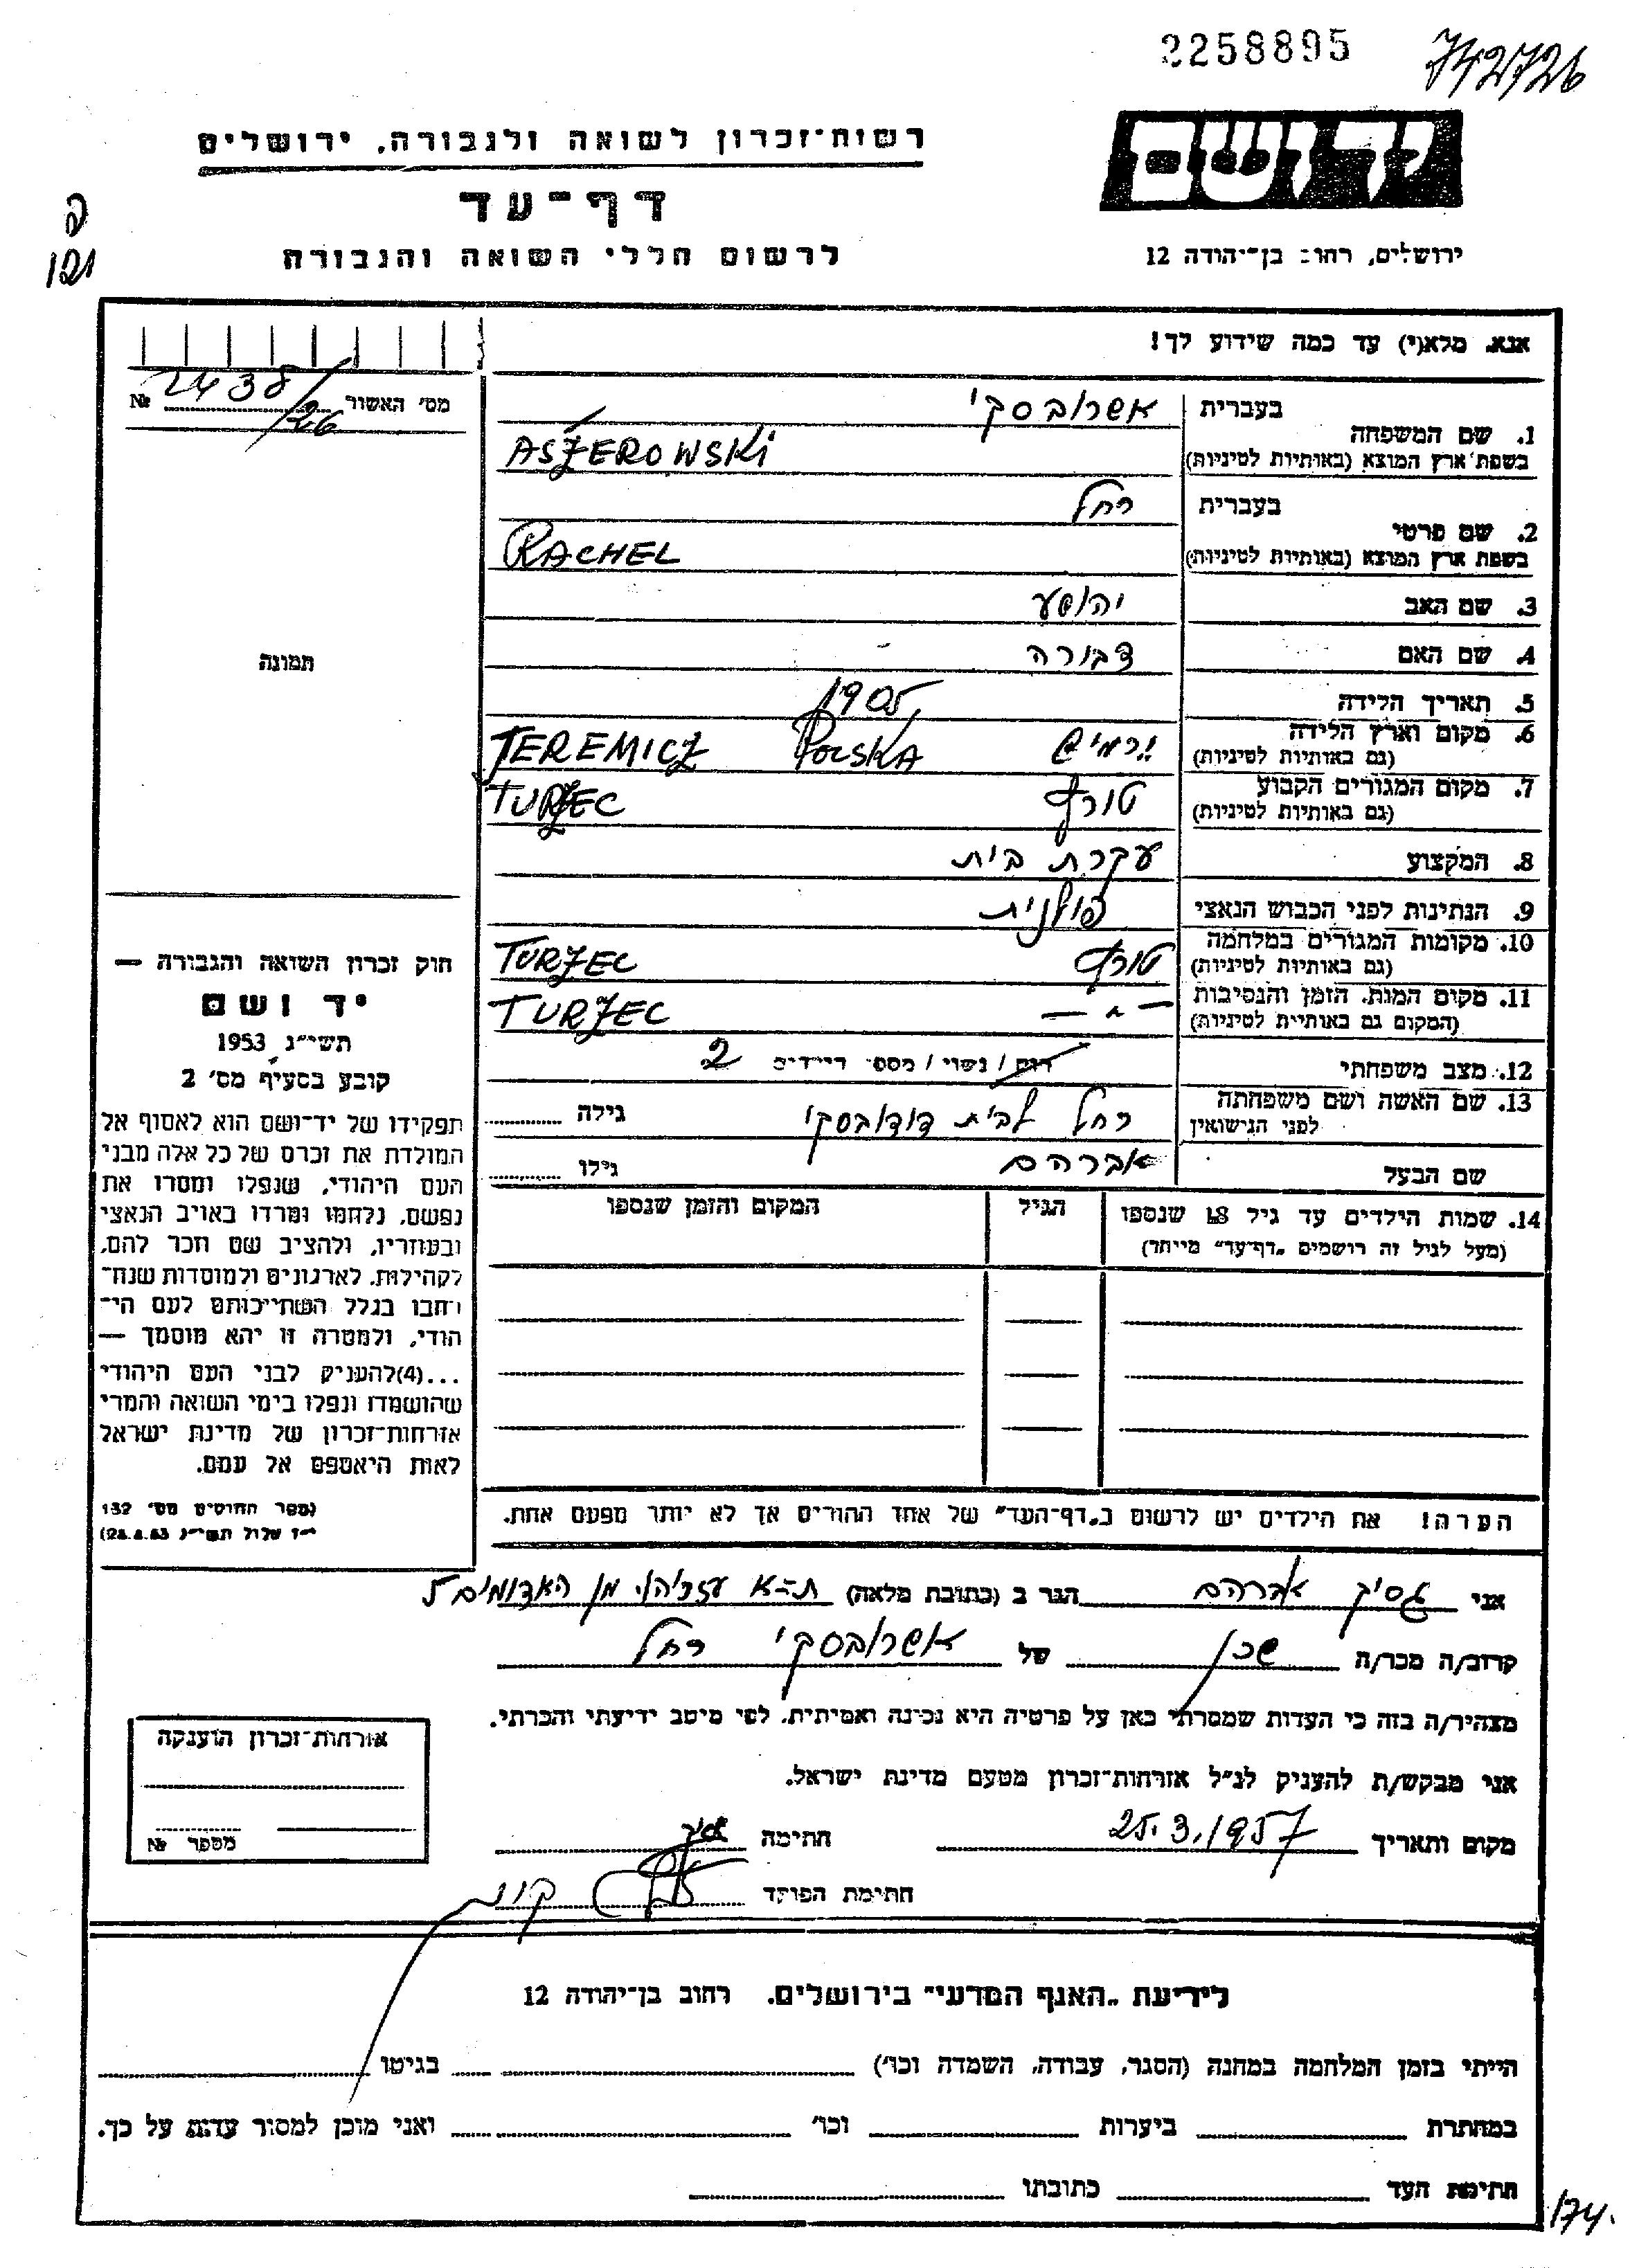 2258895
742726
רשות־זכרון לשואה ולגבורה, ירושלים
יד ושם
דף־עד
לרשום חללי השואה והגבורה
ירושלים, רחוב בן־יהודה 12
121
אנא, מלא(י) עד כמה שידוע לך!
מס' האשור 2438/26 №
בעברית אשרובסקי
1. שם המשפחה
בשפת ארץ המוצא (באותיות לטיניות) ASZEROWSKI
בעברית רחל
2. שם פרטי
בשפת ארץ המוצא (באותיות לטיניות) RACHEL
3. שם האב יהושע
4. שם האם דבורה
תמונה
5. תאריך הלידה 1905
6. מקום וארץ הלידה ירמיץ POLSKA JEREMICZ
(גם באותיות לטיניות)
7. מקום המגורים הקבוע טורץ TURZEC
(גם באותיות לטיניות)
8. המקצוע עקרת בית
9. הנתינות לפני הכבוש הנאצי פולנית
10. מקומות המגורים במלחמה טורץ TURZEC
(גם באותיות לטיניות)
11. מקום המות, הזמן והנסיבות — " — TURZEC
(המקום גם באותיות לטיניות)
12. מצב משפחתי רווק / נשוי / מספר הילדים 2
13. שם האשה ושם משפחתה רחל לבית דודובסקי גילה
לפני הנישואין
שם הבעל אברהם גילו
14. שמות הילדים עד גיל 18 שנספו הגיל המקום והזמן שנספו
(מעל לגיל זה רושמים „דף־עד” מיוחד)
חוק זכרון השואה והגבורה —
יד ושם
תשי״ג 1953
קובע בסעיף מס' 2
תפקידו של יד־ושם הוא לאסוף אל
המולדת את זכרם של כל אלה מבני
העם היהודי, שנפלו ומסרו את
נפשם, נלחמו ומרדו באויב הנאצי
ובעוזריו, ולהציב שם וזכר להם,
לקהילות, לארגונים ולמוסדות שנח־
רבו בגלל השתייכותם לעם הי־
הודי, ולמטרה זו יהא מוסמך —
...(4) להעניק לבני העם היהודי
שהושמדו ונפלו בימי השואה והמרי
אזרחות־זכרון של מדינת ישראל
לאות היאספם אל עמם.
(ספר החוקים מס' 132
י״ז אלול תשי״ג 28.8.53)
הערה! את הילדים יש לרשום ב„דף־העד” של אחד ההורים אך לא יותר מפעם אחת.
אני אברהם הגר ב (כתובת מלאה) ת־א
קרוב/ה מכר/ה שכן של אשרובסקי רחל
מצהיר/ה בזה כי העדות שמסרתי כאן על פרטיה היא נכונה ואמיתית, לפי מיטב ידיעתי והכרתי.
אני מבקש/ת להעניק לנ״ל אזרחות־זכרון מטעם מדינת ישראל.
מקום ותאריך 25.3.1957 חתימה
חתימת הפוקד
אזרחות־זכרון הוענקה
מספר №
לידיעת „האגף המדעי” בירושלים, רחוב בן־יהודה 12
הייתי בזמן המלחמה במחנה (הסגר, עבודה, השמדה וכו') בגיטו
במחתרת ביערות וכו' ואני מוכן למסור עדות על כך.
חתימת העד כתובתו
174.